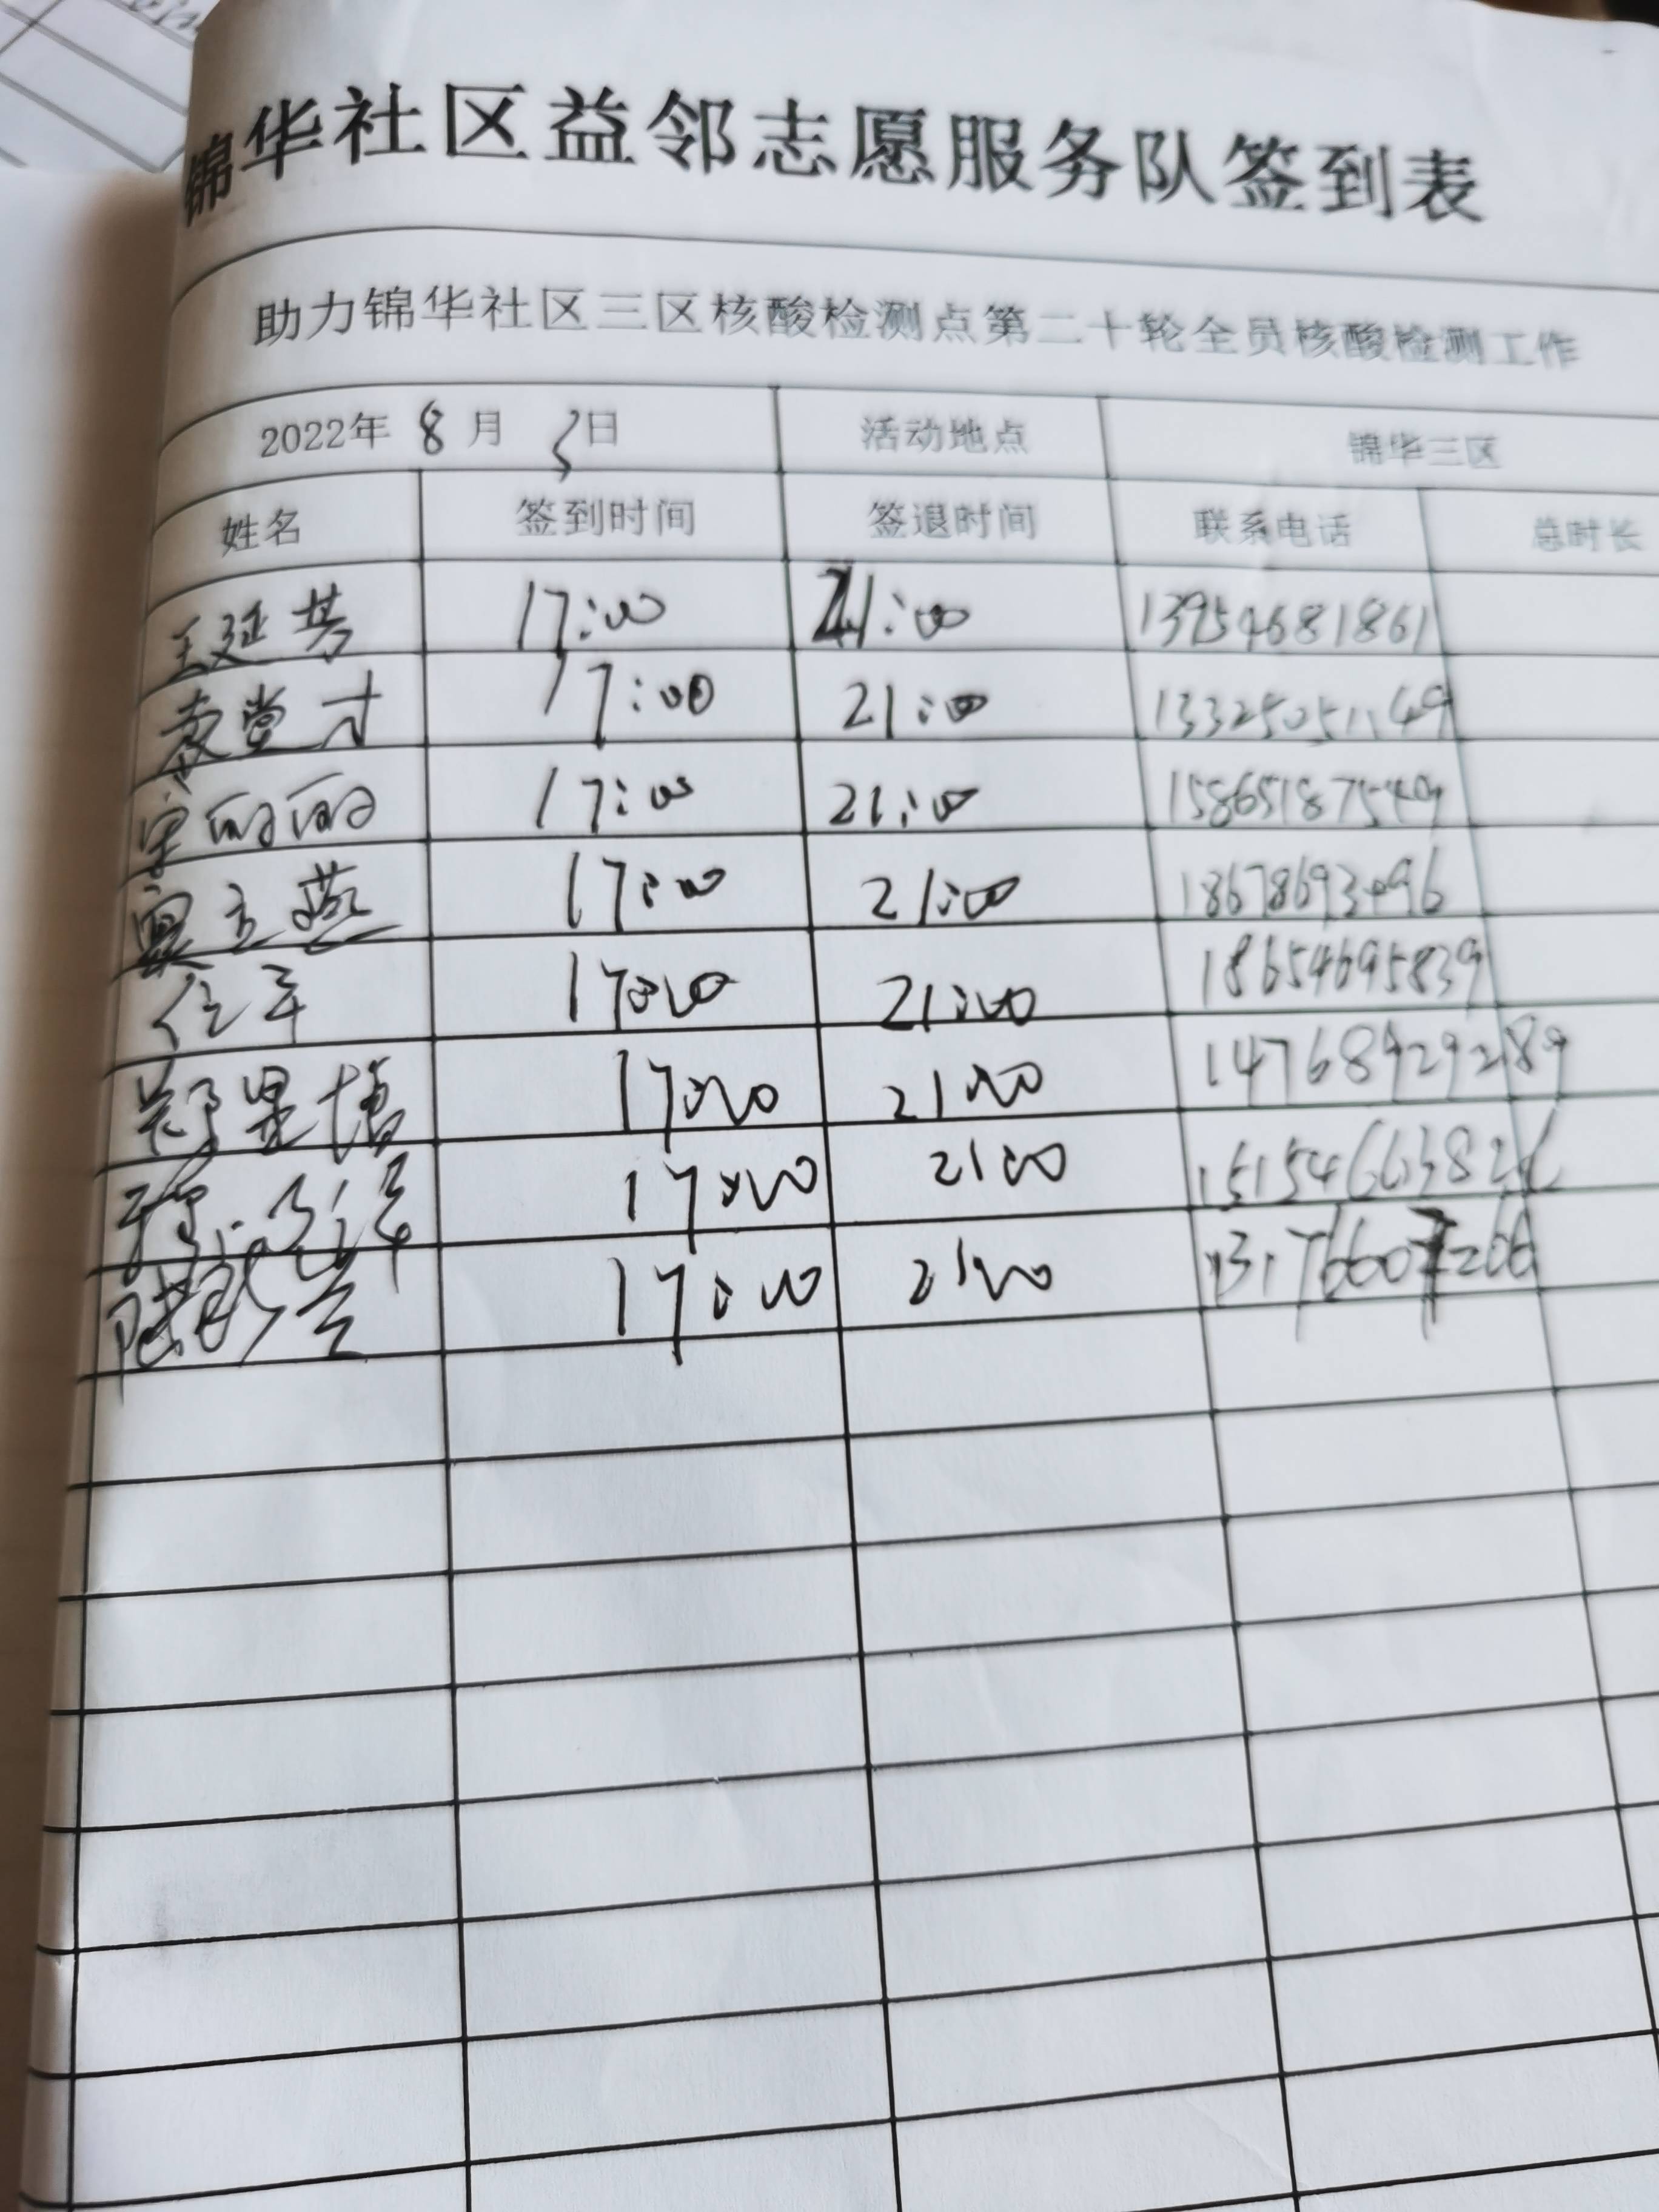 锦华社区益邻志愿服务队签到表
助力锦华社区三区核酸检测点第二十轮全员核酸检测工作
2022年 8 月 3日 活动地点 锦华三区
姓名 签到时间 签退时间 联系电话 总时长
王延芳 17:00 21:00 13954681861
袁堂才 17:00 21:00 13325051149
宋丽丽 17:00 21:00 15865187549
窦立燕 17:00 21:00 18678693496
任军 17:00 21:00 18654695839
郑星博 17:00 21:00 14768929289
17:00 21:00
17:00 21:00